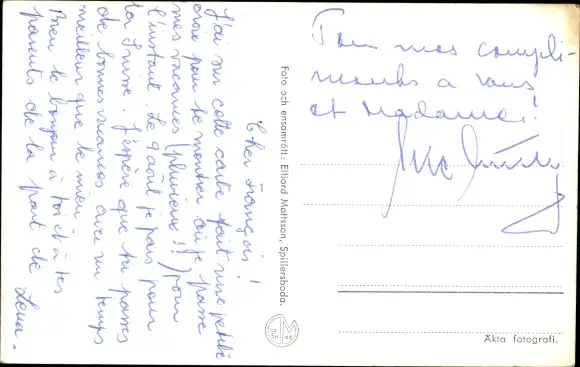 Cher François!
J'ai sur cette carte fait une petite
croix pour te montrer où je passe
mes vacances (pluvieux!!) pour
l'instant. Le 9 août je pars pour
la Suisse. J'espère que tu passes
de bonnes vacances avec un temps
meilleur que le mien
Bien le bonjour à toi et à tes
parents de la part de Lena.
Foto och ensamrätt: Elliord Mattsson, Spillersboda.
Tous mes compli-
ments a vous
et Madame!
Äkta fotografi.